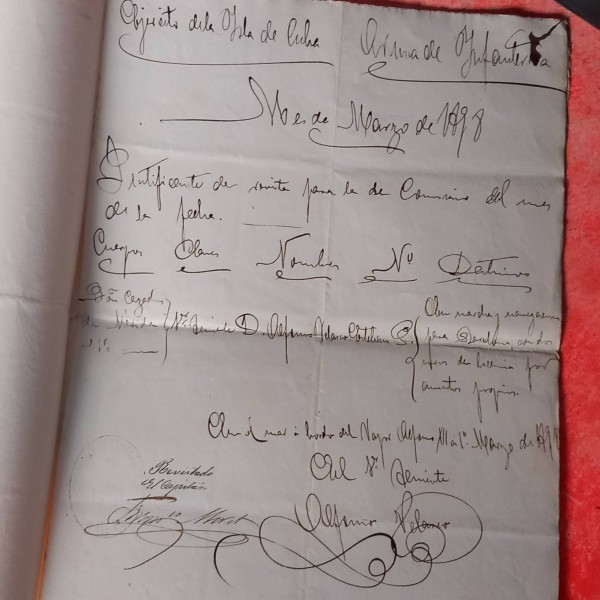 Ejército de la Isla de Cuba Arma de Infantería
Mes de Marzo de 1898
Justificante de revista para la de Comisario del mes
de la fecha.
Cuerpos Clases Nombres Nº Destinos
Bón Cazadores
de
2º Teniente D. Alfonso Velasco
En marcha y navegación
para Barcelona con dos
meses de licencia por
asuntos propios.
En el mar a bordo del Vapor Alfonso XIII a 1º Marzo de 1898
El 2º Teniente
Alfonso Velasco
Revistado
El Capitán